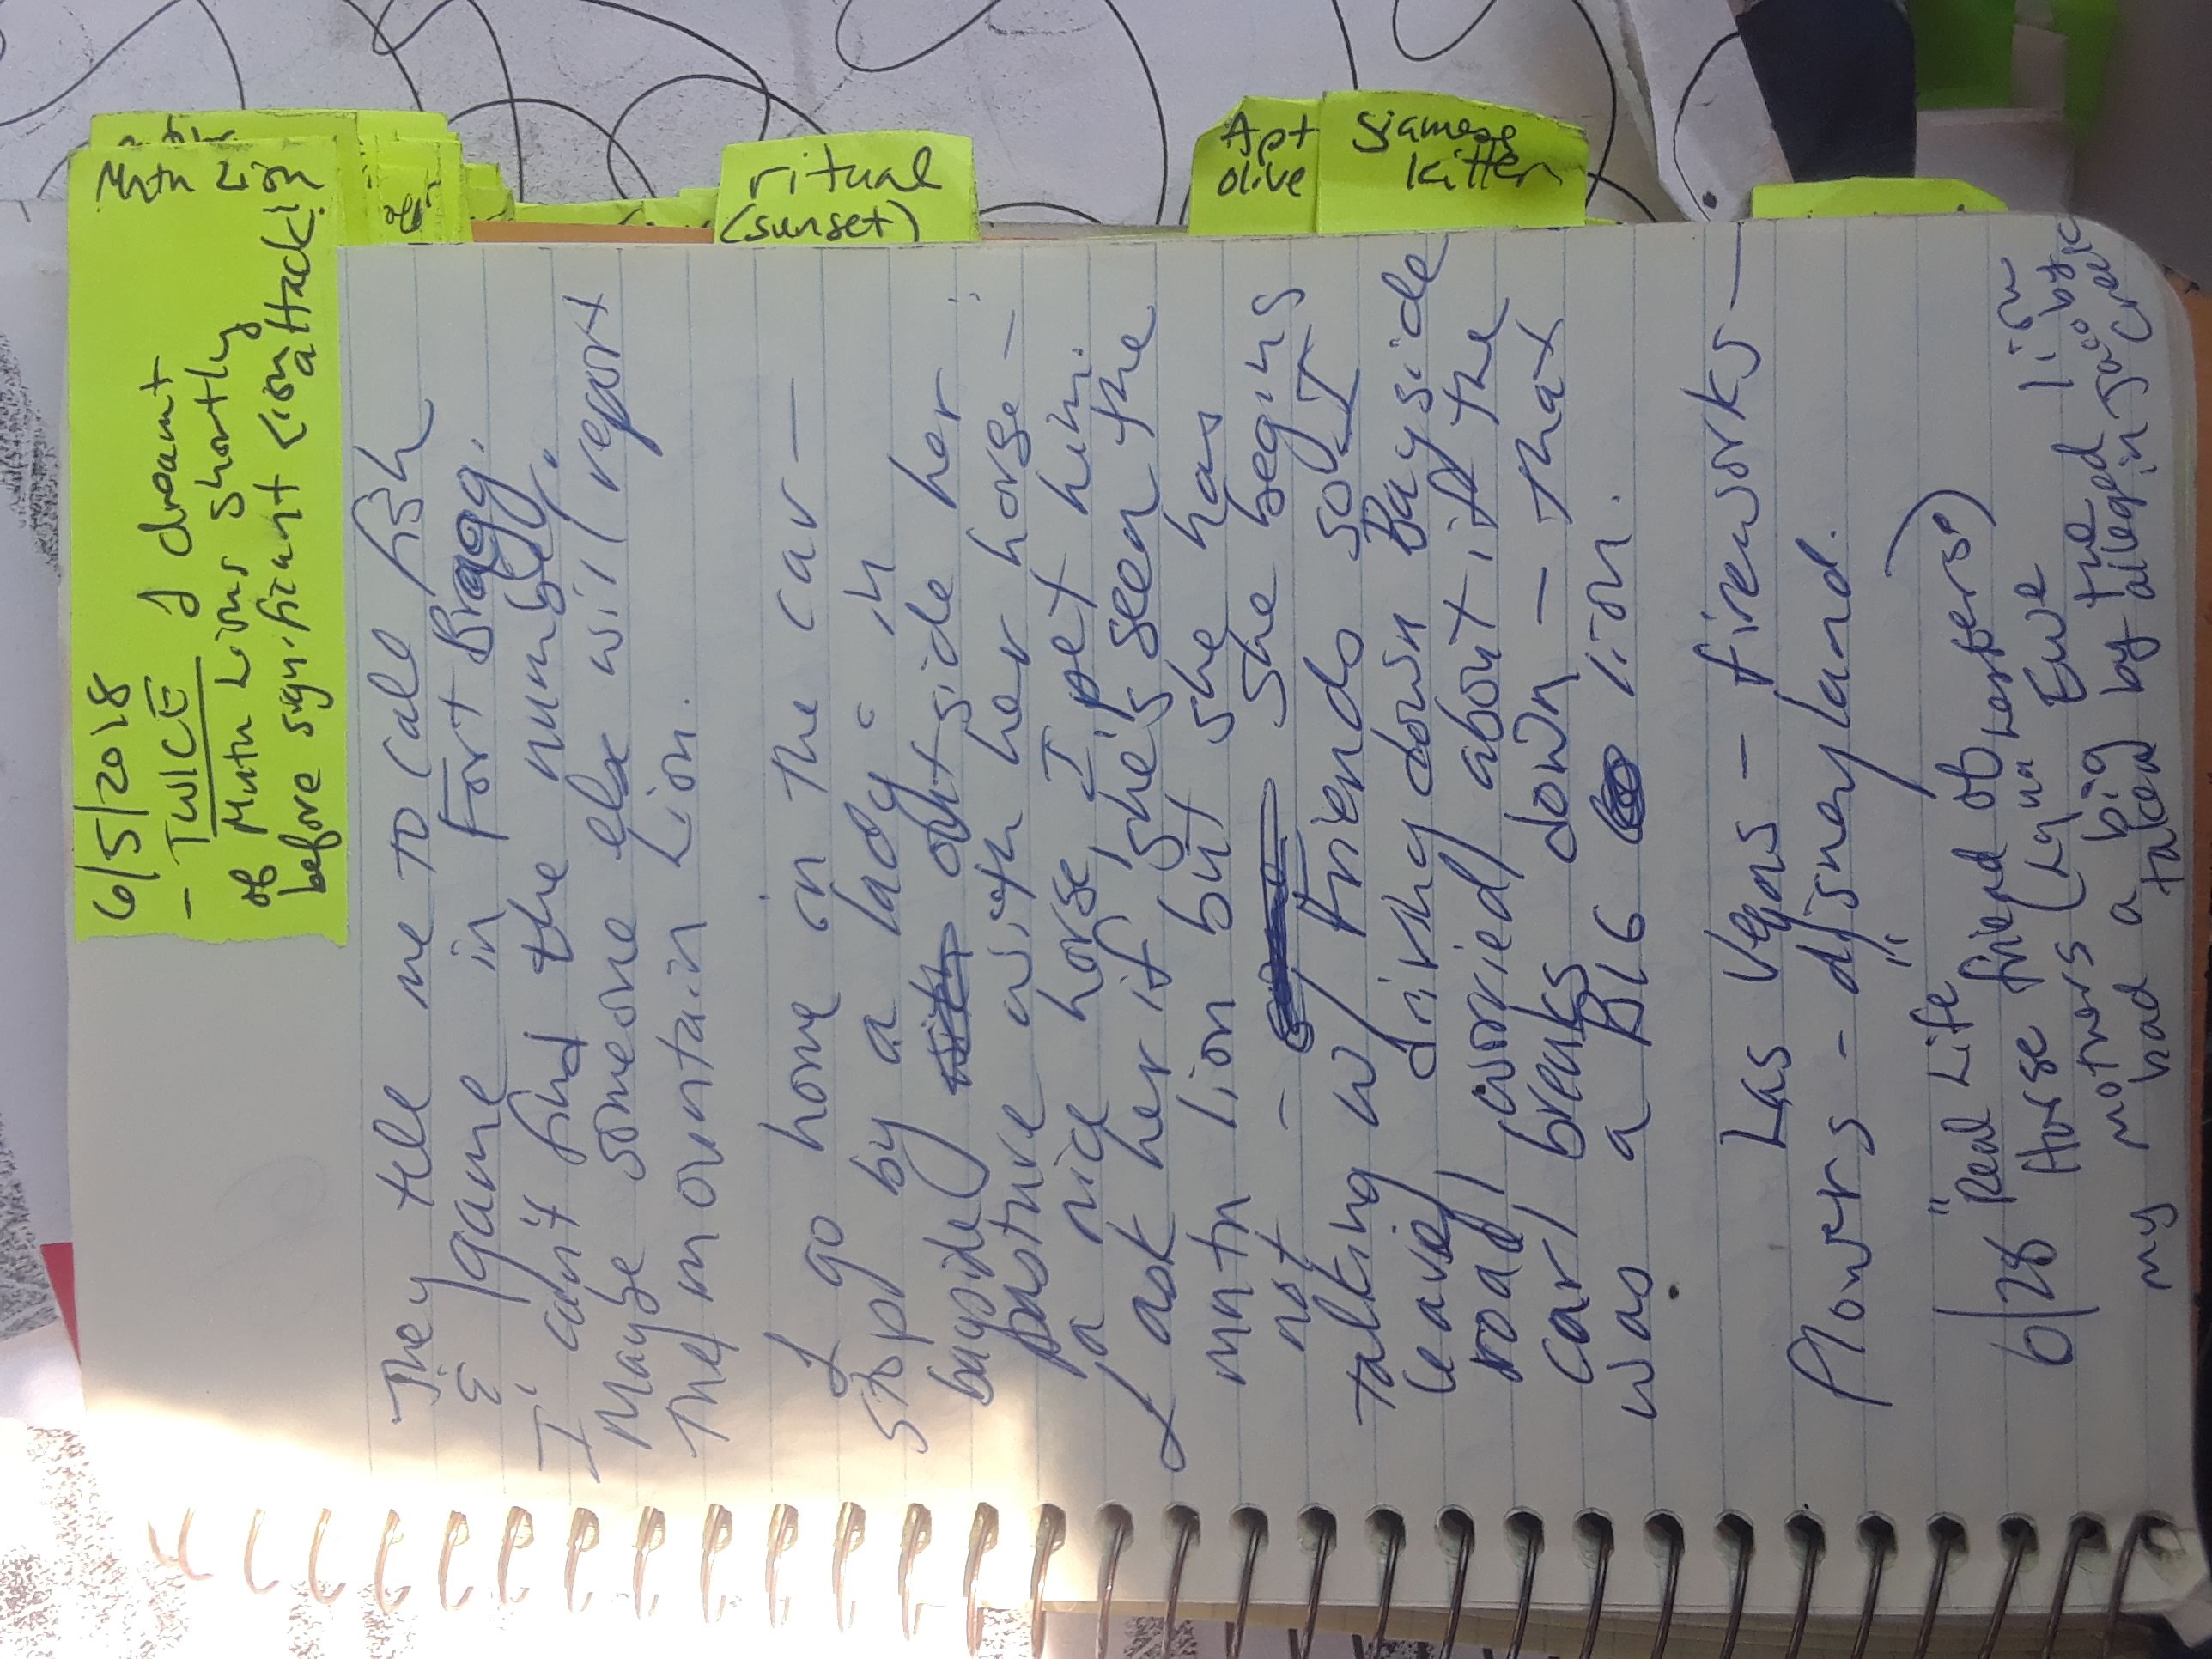 Mntn Lion
6/5/2018
- TWICE I dreamt
of Mntn Lions shortly
before significant Lion
attack!
ritual
(sunset)
Apt
olive
Siamese
kitten
They tell me to call fish
& game in Fort Bragg.
I can't find the number.
Maybe someone else will report
the mountain Lion.
I go home in the car —
stop by a lady in
bayside outside her
pasture with her horse —
a nice horse, I pet him.
I ask her if she's seen the
mntn lion but she has
not - she begins
talking w/ friends so I
leave, driving down Bayside
road, worried about if the
car breaks down - that
was a BIG lion.
Las Vegas - fireworks -
Flowers - disneyland.
6/28 "Real Life"
Horse friend of
mothers (Lyna Ewe
had a big
my
taken by